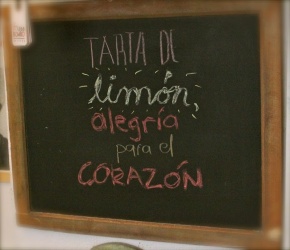 TARTA DE
limón,
alegría
para el
CORAZÓN